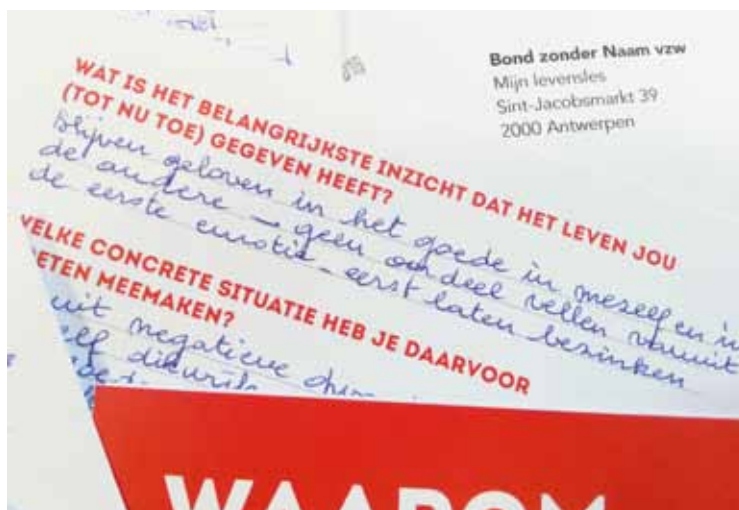 Bond zonder Naam vzw
Mijn levensles
Sint-Jacobsmarkt 39
2000 Antwerpen
WAT IS HET BELANGRIJKSTE INZICHT DAT HET LEVEN JOU
(TOT NU TOE) GEGEVEN HEEFT?
Blijven geloven in het goede in mezelf en in
de andere – geen oordeel vellen vanuit
de eerste emotie – eerst laten bezinken
WELKE CONCRETE SITUATIE HEB JE DAARVOOR
ETEN MEEMAKEN?
uit negatieve
elf dikwijls
WAAROM